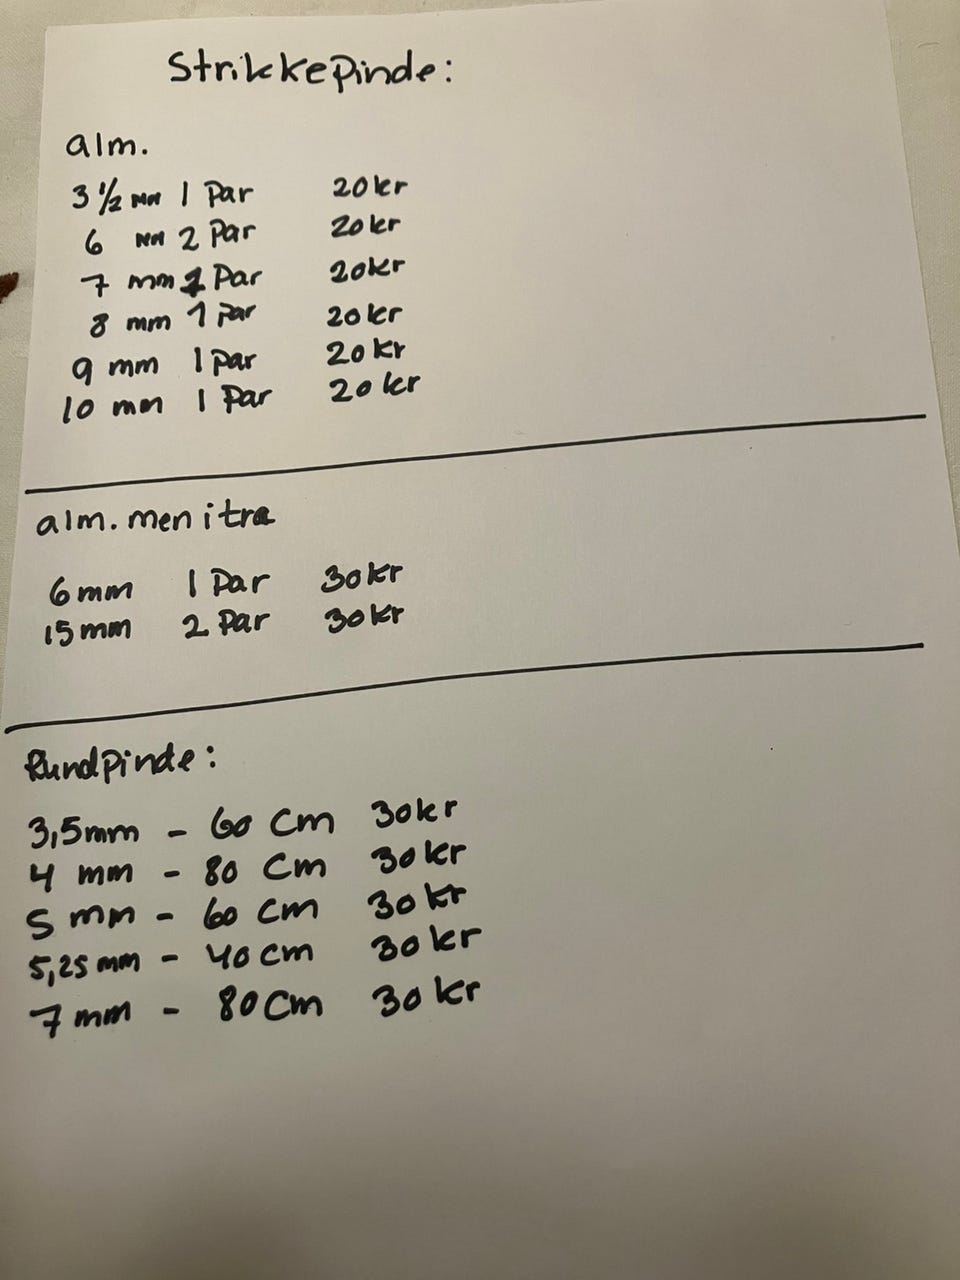 Strikkepinde:
alm.
3 1/2 mm 1 Par 20kr
6 mm 2 Par 20kr
7 mm 1 Par 20kr
8 mm 1 Par 20kr
9 mm 1 Par 20kr
10 mm 1 Par 20kr
alm. men i træ
6mm 1 Par 30kr
15mm 2 Par 30kr
Rundpinde:
3,5mm - 60 Cm 30kr
4 mm - 80 Cm 30kr
5 mm - 60 Cm 30kr
5,25mm - 40 Cm 30kr
7 mm - 80 Cm 30kr